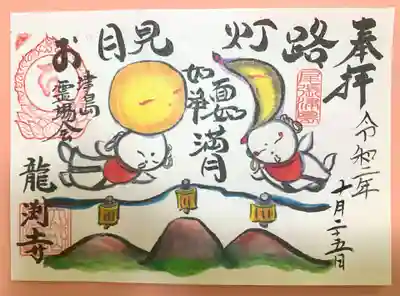 奉拝
令和二年
十月二十五日
お月見 灯路
尾張津島
面如浄満月
津島
霊場会
龍渕寺